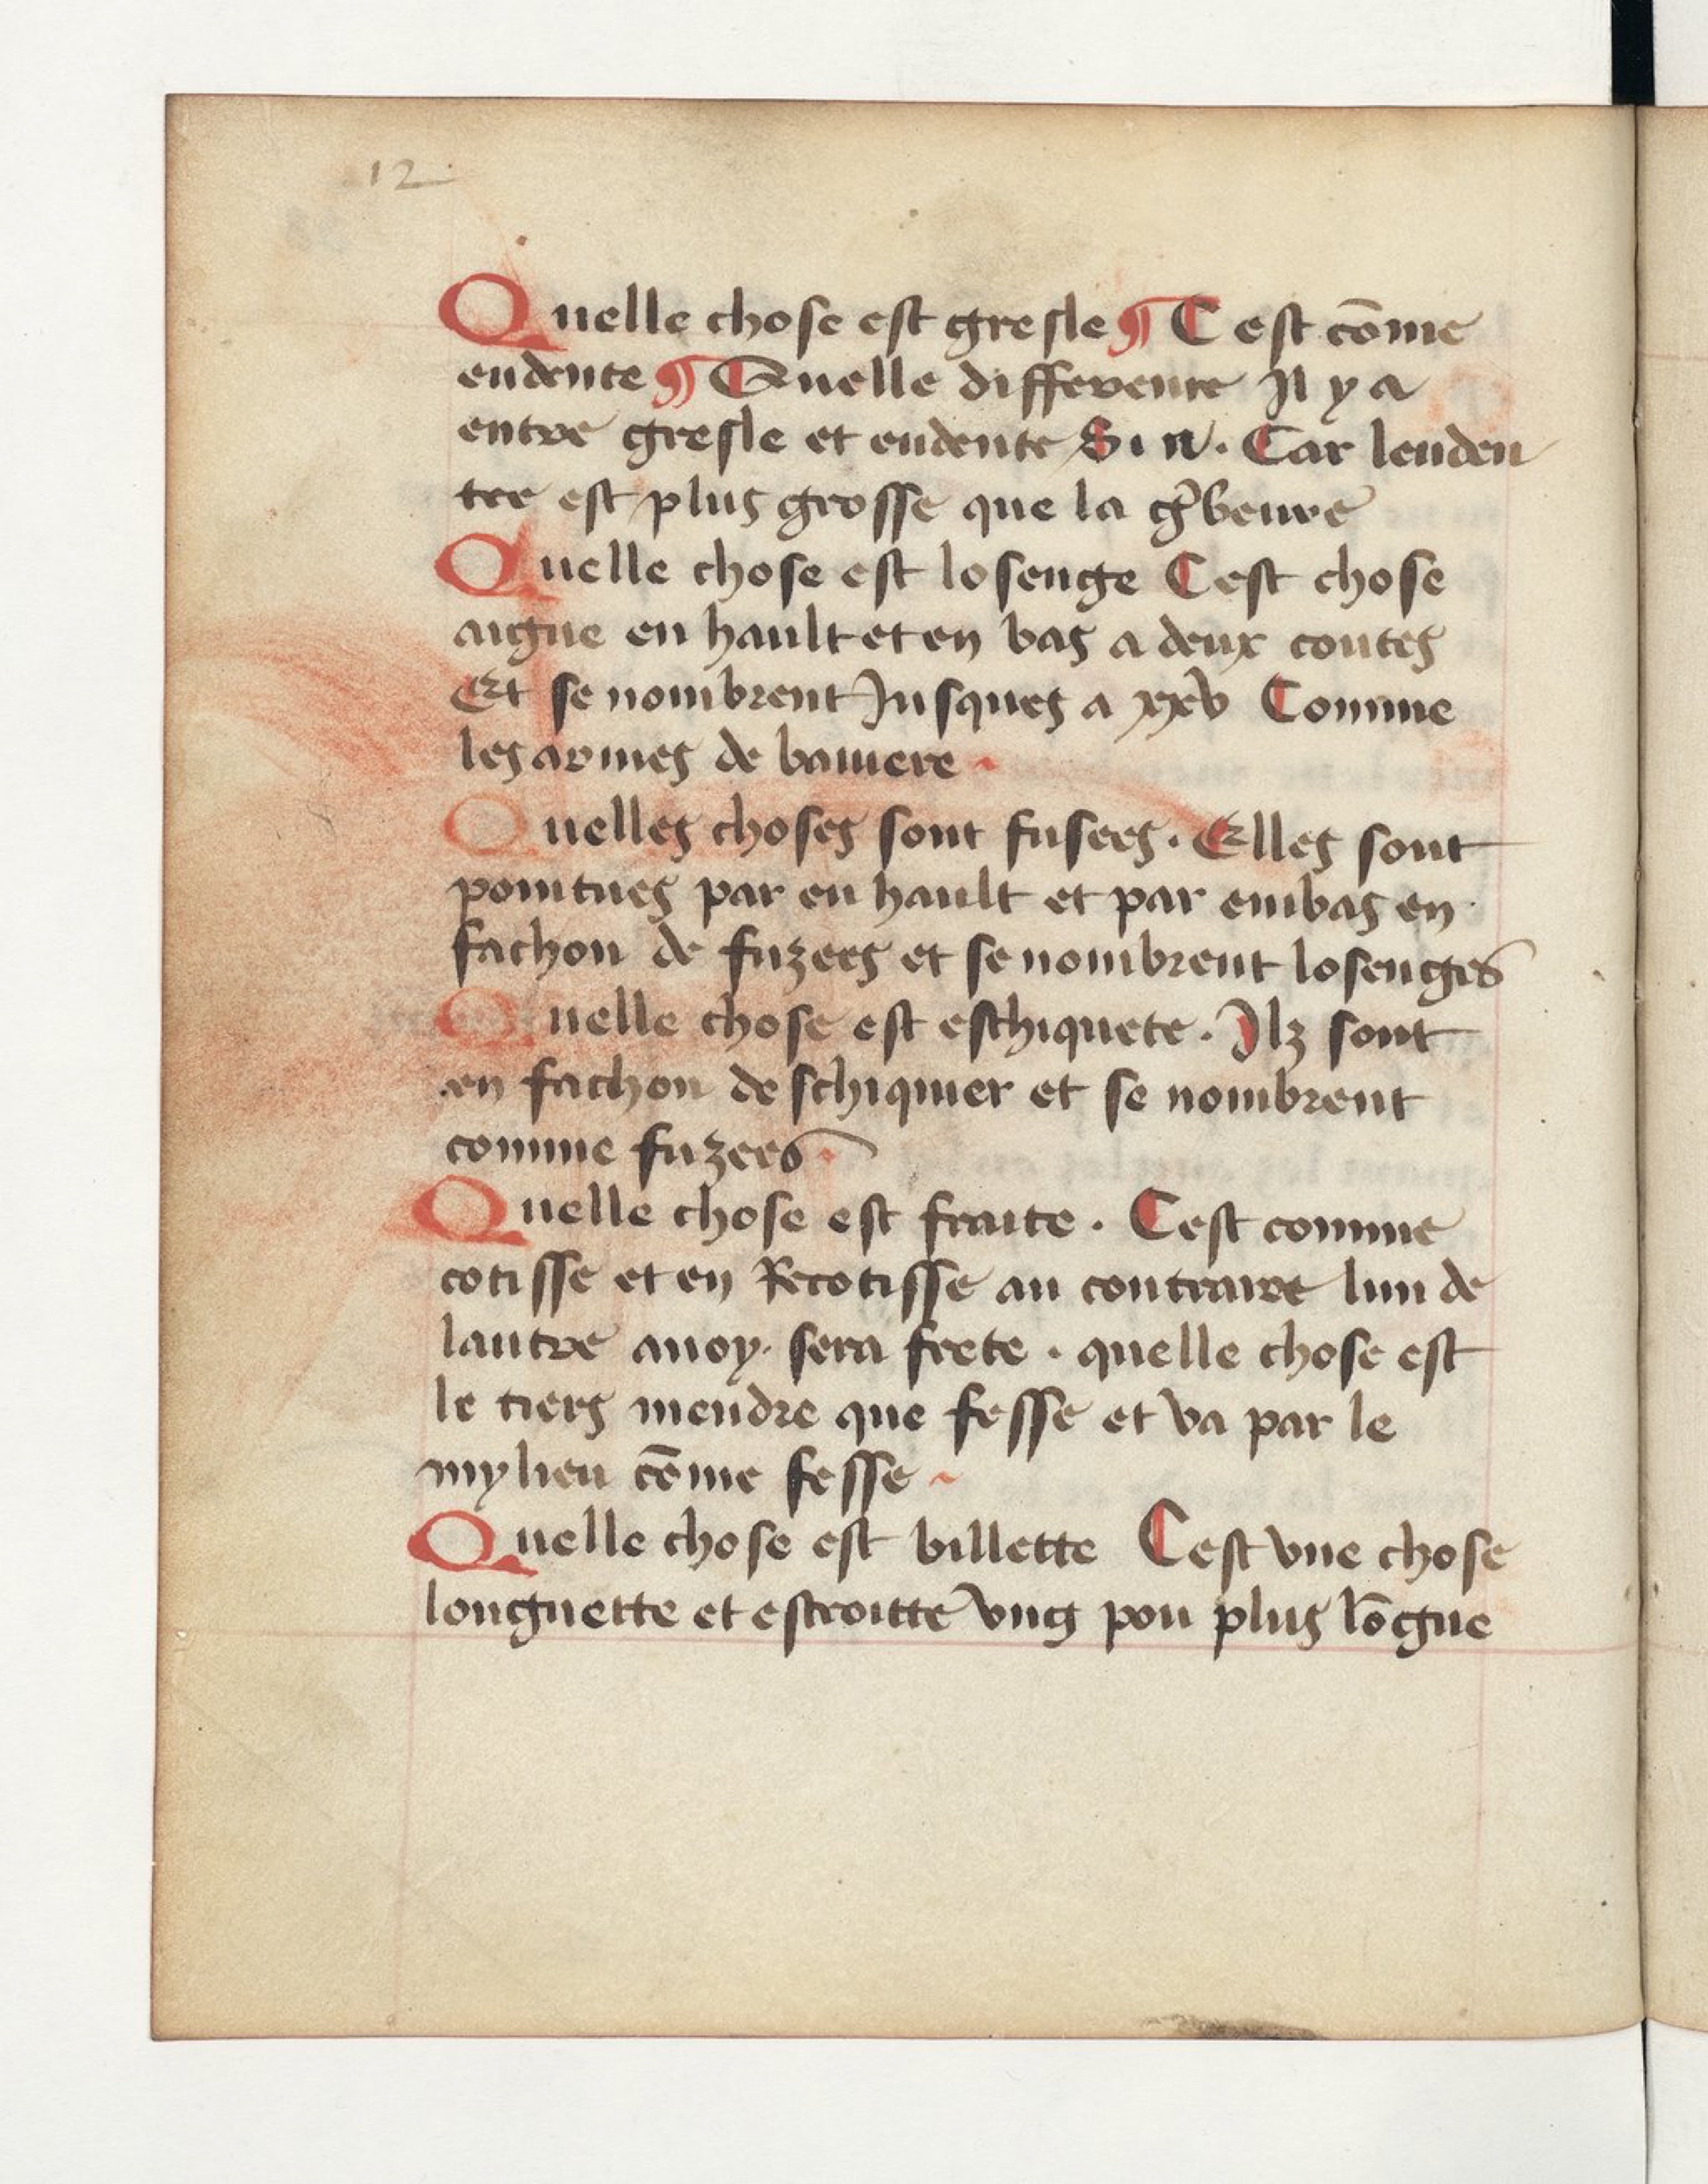 12
Quelle chose est gresle ¶ Cest cōme
endente ¶ Quelle difference Il y a
entre gresle et endente Si a. Car lenden
tee est plus grosse que la
Quelle chose est losenge Cest chose
aigue en hault et en bas a deux coutes
Et se nombrent Jusques a xxv Comme
les armes de bauiere
Quelles choses sont fusees. Elles sont
pointues par en hault et par embas en
fachon de fuzees et se nombrent losenges
Quelle chose est eschiquete. Ilz sont
en fachon deschiquier et se nombrent
comme fuzees
Quelle chose est fraite. Cest comme
cotisse et en Recotisse au contraire lun de
lautre auoy. sera frete. quelle chose est
le tiers mendre que fesse et va par le
mylieu cōme fesse
Quelle chose est billette Cest vne chose
longuette et estroitte vng pou plus lōgue